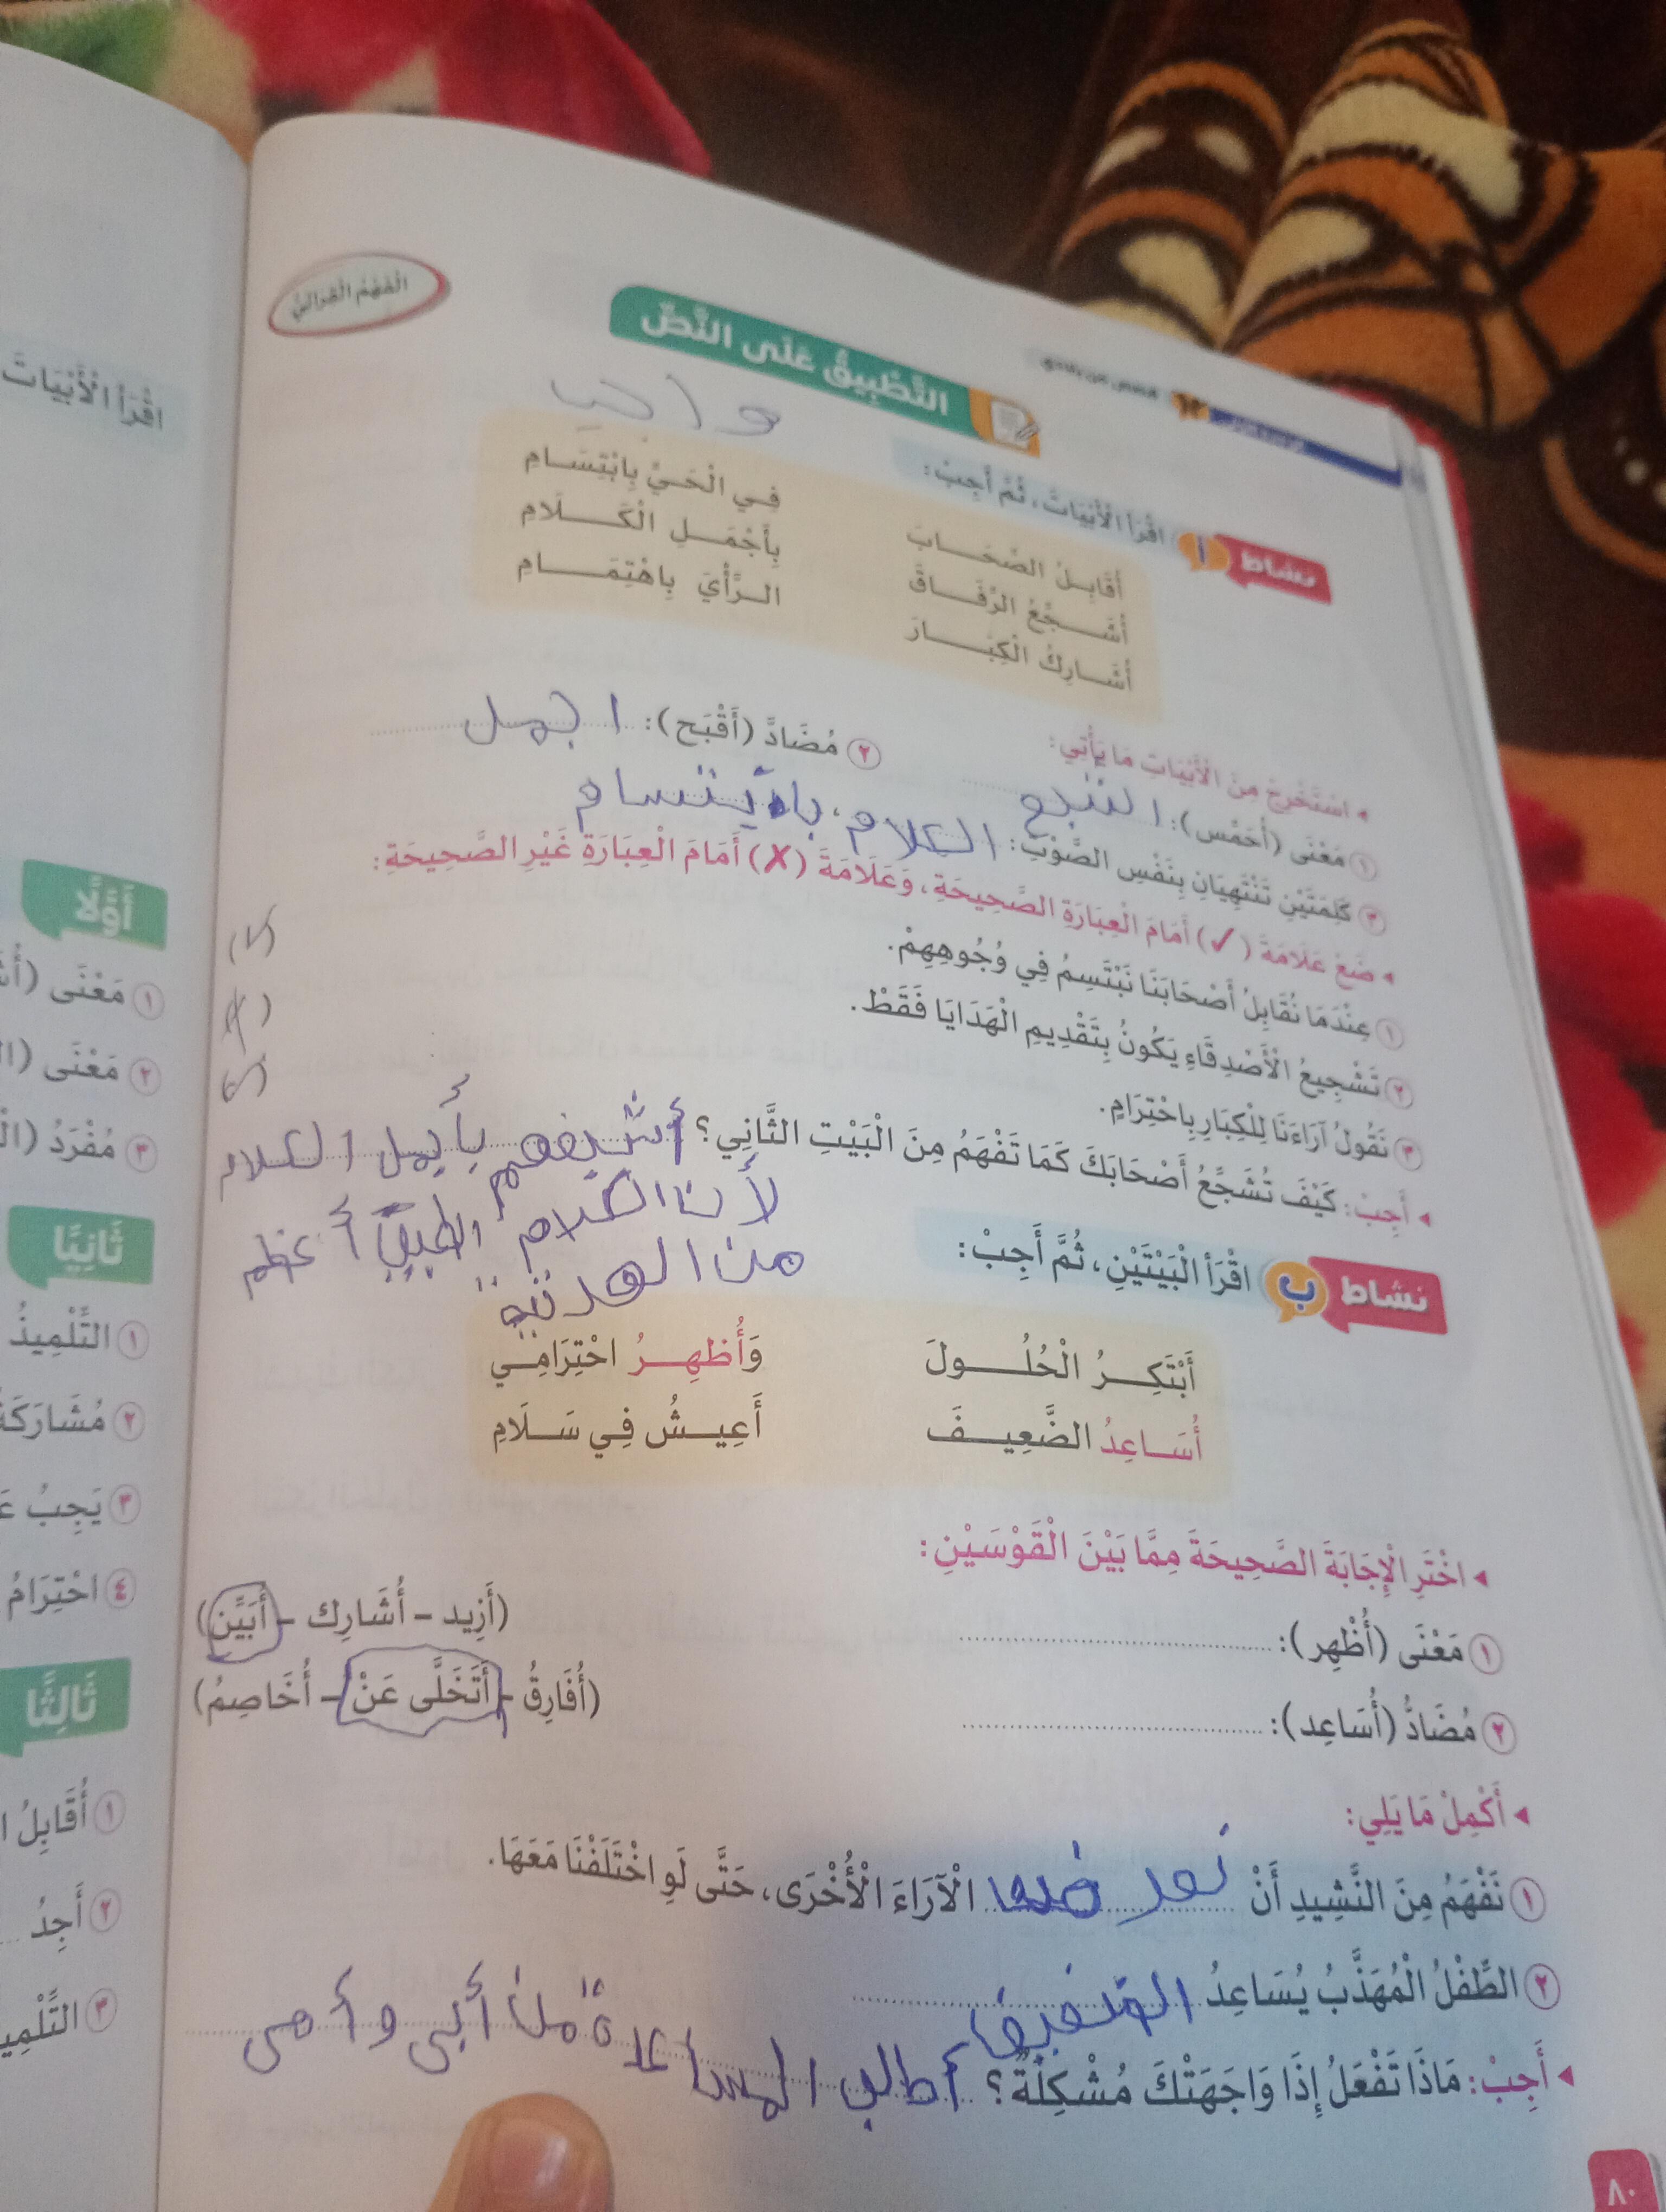 الْفَهْمُ الْقِرَائِيُّ
التَّطْبِيقُ عَلَى النَّصِّ
واجب
نشاط أ اقْرَأِ الْأَبْيَاتَ، ثُمَّ أَجِبْ:
أُقَابِلُ الصِّحَابَ فِي الْحَيِّ بِابْتِسَامِ
أُشَجِّعُ الرِّفَاقَ بِأَجْمَلِ الْكَلَامِ
أُشَارِكُ الْكِبَارَ الرَّأْيَ بِاهْتِمَامِ
◂ اسْتَخْرِجْ مِنَ الْأَبْيَاتِ مَا يَأْتِي:
١ مَعْنَى (أُحَمِّس): ٢ مُضَادَّ (أَقْبَح): اجمل
٣ كَلِمَتَيْنِ تَنْتَهِيَانِ بِنَفْسِ الصَّوْتِ: الكلام، بابتسام
◂ ضَعْ عَلَامَةَ (✓) أَمَامَ الْعِبَارَةِ الصَّحِيحَةِ، وَعَلَامَةَ (✗) أَمَامَ الْعِبَارَةِ غَيْرِ الصَّحِيحَةِ:
١ عِنْدَمَا نُقَابِلُ أَصْحَابَنَا نَبْتَسِمُ فِي وُجُوهِهِمْ. (✓)
٢ تَشْجِيعُ الْأَصْدِقَاءِ يَكُونُ بِتَقْدِيمِ الْهَدَايَا فَقَطْ. (✗)
٣ نَقُولُ آرَاءَنَا لِلْكِبَارِ بِاحْتِرَامٍ. (✓)
◂ أَجِبْ: كَيْفَ تُشَجِّعُ أَصْحَابَكَ كَمَا تَفْهَمُ مِنَ الْبَيْتِ الثَّانِي؟ الكلام
لأن الكلام الطيب أعظم
من الهدية
نشاط ب اقْرَأِ الْبَيْتَيْنِ، ثُمَّ أَجِبْ:
أَبْتَكِرُ الْحُلُولَ وَأُظهِرُ احْتِرَامِي
أُسَاعِدُ الضَّعِيفَ أَعِيشُ فِي سَلَامِ
◂ اخْتَرِ الْإِجَابَةَ الصَّحِيحَةَ مِمَّا بَيْنَ الْقَوْسَيْنِ:
١ مَعْنَى (أُظْهِر): (أَزِيد - أُشَارِك - أُبَيِّن)
٢ مُضَادُّ (أُسَاعِد): (أُفَارِقُ - أَتَخَلَّى عَنْ - أُخَاصِمُ)
◂ أَكْمِلْ مَا يَلِي:
١ نَفْهَمُ مِنَ النَّشِيدِ أَنْ الْآرَاءَ الْأُخْرَى، حَتَّى لَوِ اخْتَلَفْنَا مَعَهَا.
٢ الطِّفْلُ الْمُهَذَّبُ يُسَاعِدُ
◂ أَجِبْ: مَاذَا تَفْعَلُ إِذَا وَاجَهَتْكَ مُشْكِلَةٌ؟ أطلب المساعدة من أبى وأمى
٨٠
اقْرَأِ الْأَبْيَاتَ
أَوَّلًا
١ مَعْنَى
٢ مَعْنَى
٣ مُفْرَدُ
ثَانِيًا
١ التِّلْمِيذُ
٢ مُشَارَكَةُ
٣ يَجِبُ
٤ احْتِرَامُ
ثَالِثًا
١ أُقَابِلُ
٢ أَجِدُ
٣